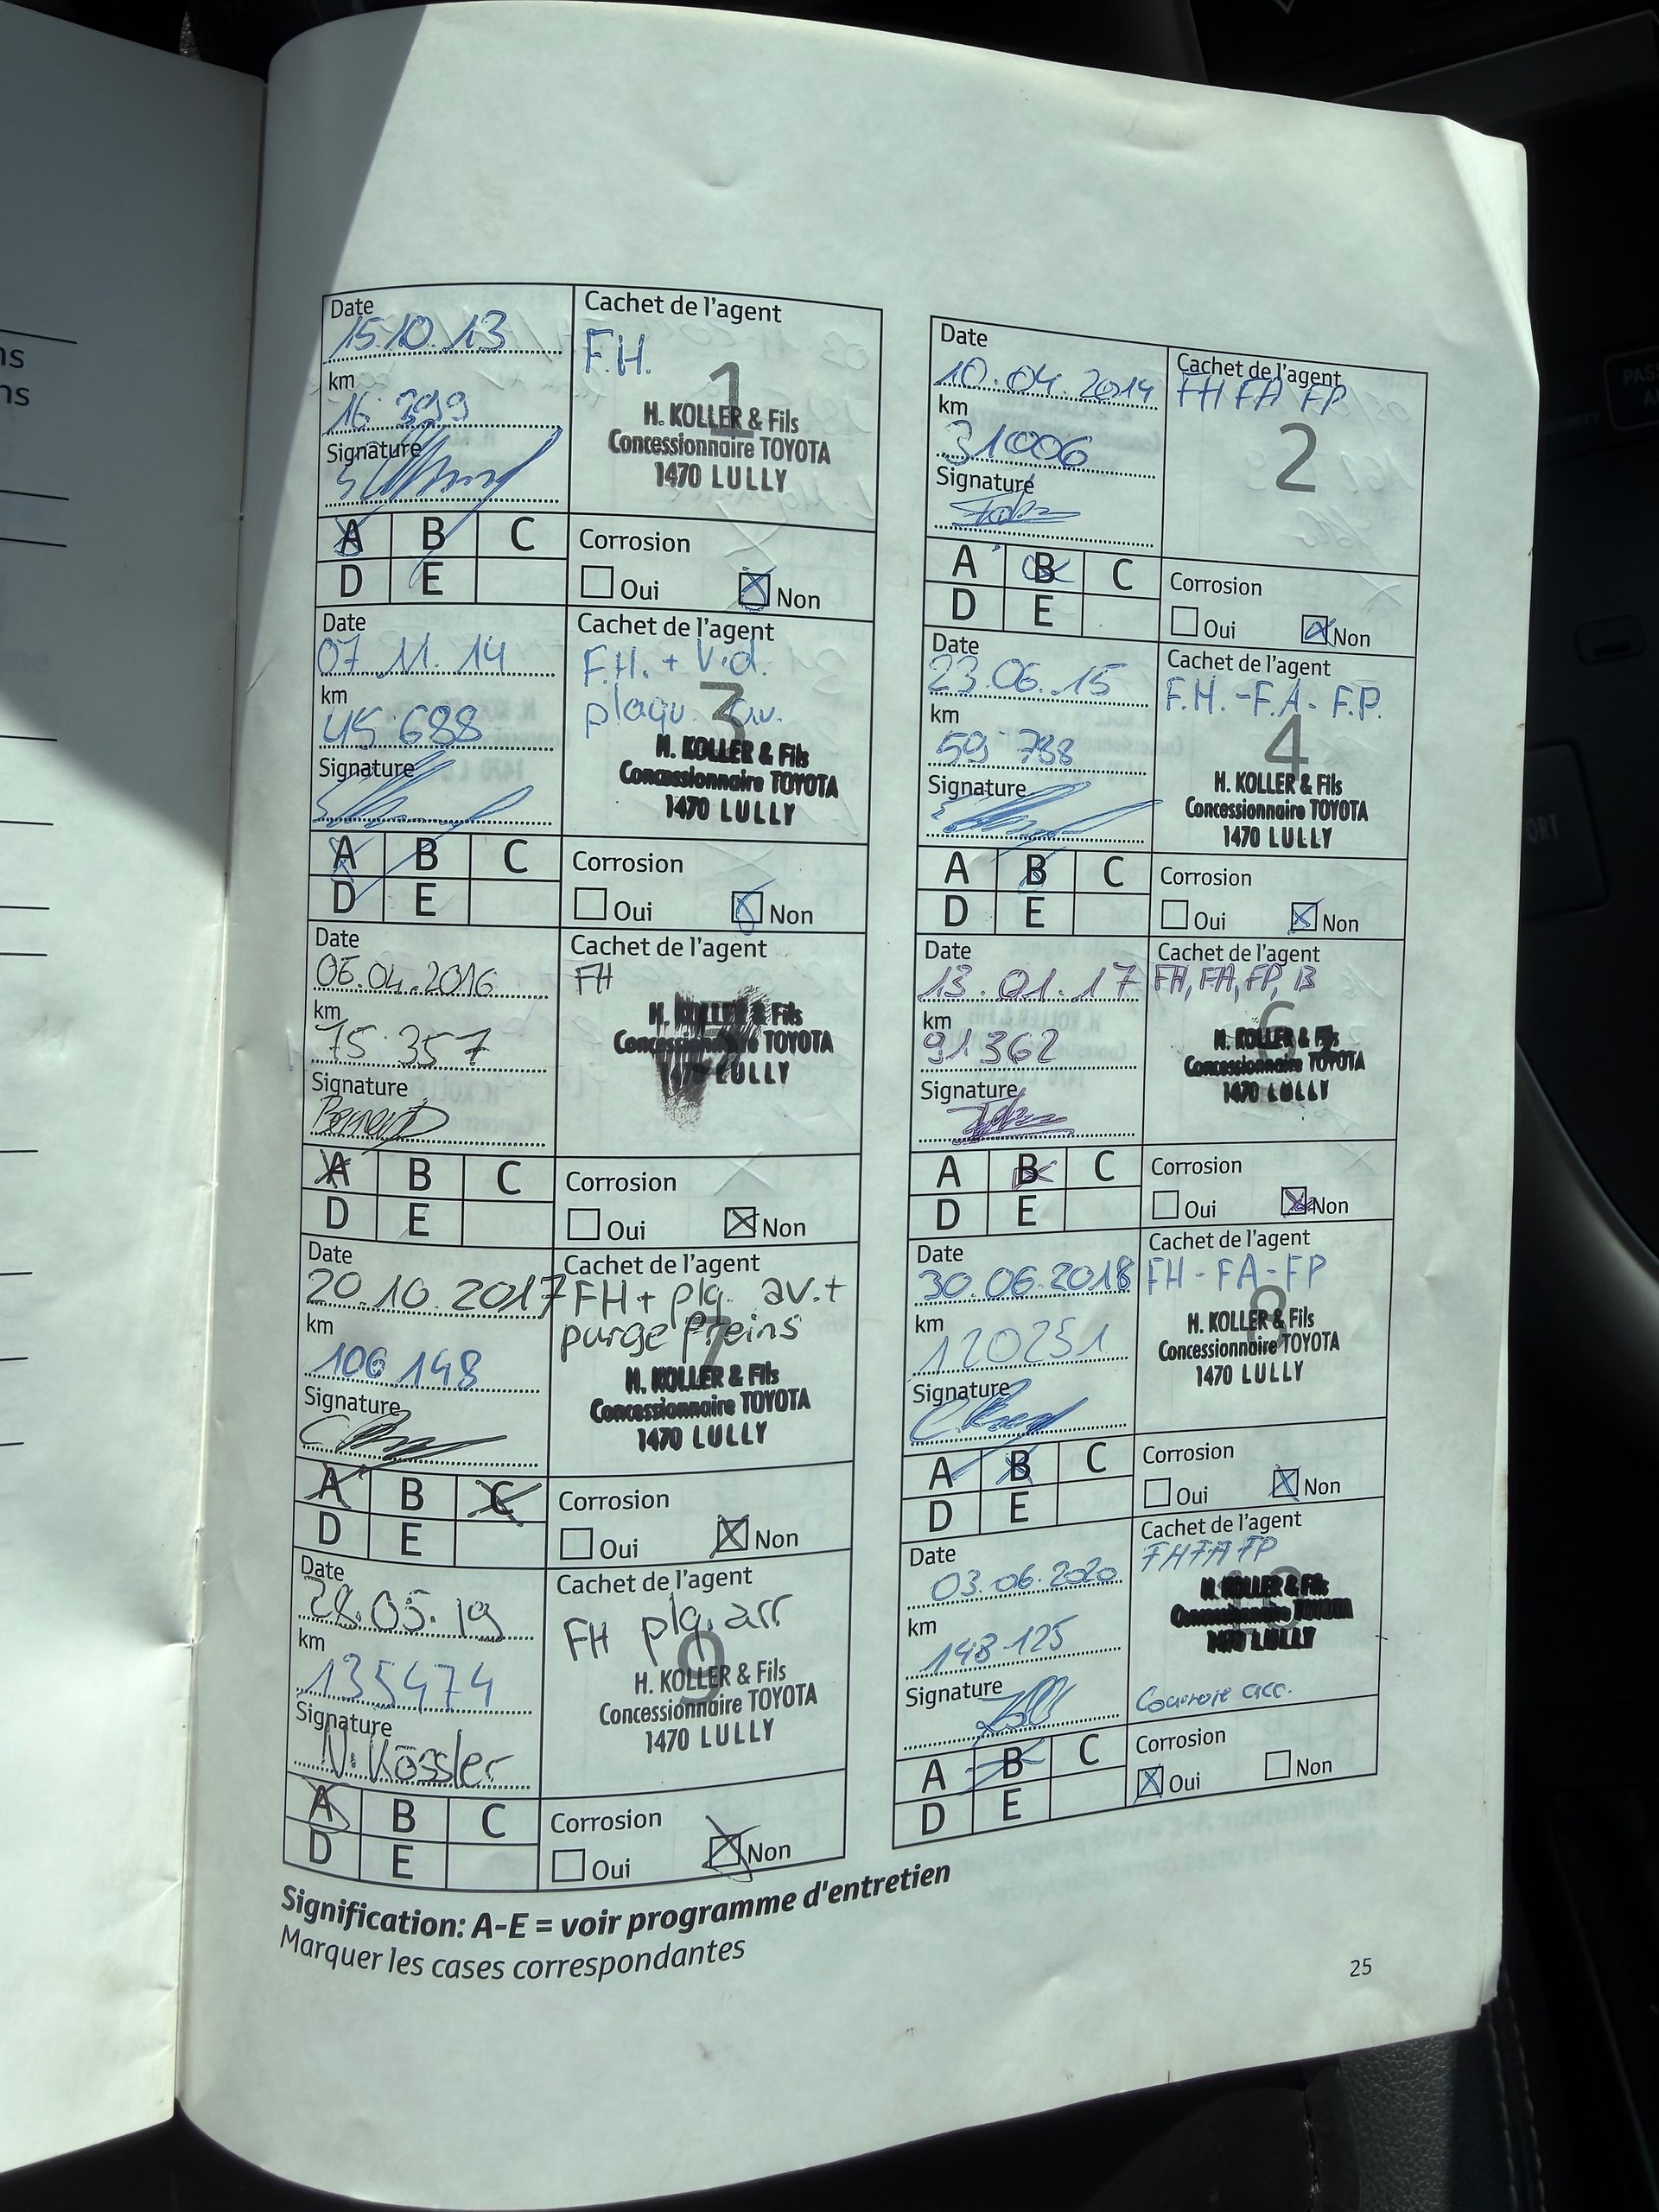 ns
ns
Date
15.10.13
km
16 399
Signature
A B C
D E
Cachet de l'agent
F.H.
1
H. KOLLER & Fils
Concessionnaire TOYOTA
1470 LULLY
Corrosion
Oui Non
Date
10.04.2014
km
31006
Signature
A B C
D E
Cachet de l'agent
FH FA FP
2
Corrosion
Oui Non
Date
07.11.14
km
45 688
Signature
A B C
D E
Cachet de l'agent
F.H. + Vid.
plaqu. av.
3
H. KOLLER & Fils
Concessionnaire TOYOTA
1470 LULLY
Corrosion
Oui Non
Date
23.06.15
km
59 788
Signature
A B C
D E
Cachet de l'agent
F.H. - F.A - F.P.
4
H. KOLLER & Fils
Concessionnaire TOYOTA
1470 LULLY
Corrosion
Oui Non
Date
06.04.2016
km
75 357
Signature
A B C
D E
Cachet de l'agent
FH
H. KOLLER & Fils
Concessionnaire TOYOTA
1470 LULLY
Corrosion
Oui Non
Date
13.01.17
km
91362
Signature
A B C
D E
Cachet de l'agent
FH, FA, FP, B
6
H. KOLLER & Fils
Concessionnaire TOYOTA
1470 LULLY
Corrosion
Oui Non
Date
20.10.2017
km
106 148
Signature
A B C
D E
Cachet de l'agent
FH + plq. av. +
purge freins
7
H. KOLLER & Fils
Concessionnaire TOYOTA
1470 LULLY
Corrosion
Oui Non
Date
30.06.2018
km
120251
Signature
A B C
D E
Cachet de l'agent
FH - FA - FP
8
H. KOLLER & Fils
Concessionnaire TOYOTA
1470 LULLY
Corrosion
Oui Non
Date
28.05.19
km
135474
Signature
N. Kössler
A B C
D E
Cachet de l'agent
FH plq. arr
9
H. KOLLER & Fils
Concessionnaire TOYOTA
1470 LULLY
Corrosion
Oui Non
Date
03.06.2020
km
148 125
Signature
A B C
D E
Cachet de l'agent
FH FA FP
10
H. KOLLER & Fils
Concessionnaire TOYOTA
1470 LULLY
Courroie acc.
Corrosion
Oui Non
Signification: A-E = voir programme d'entretien
Marquer les cases correspondantes
25